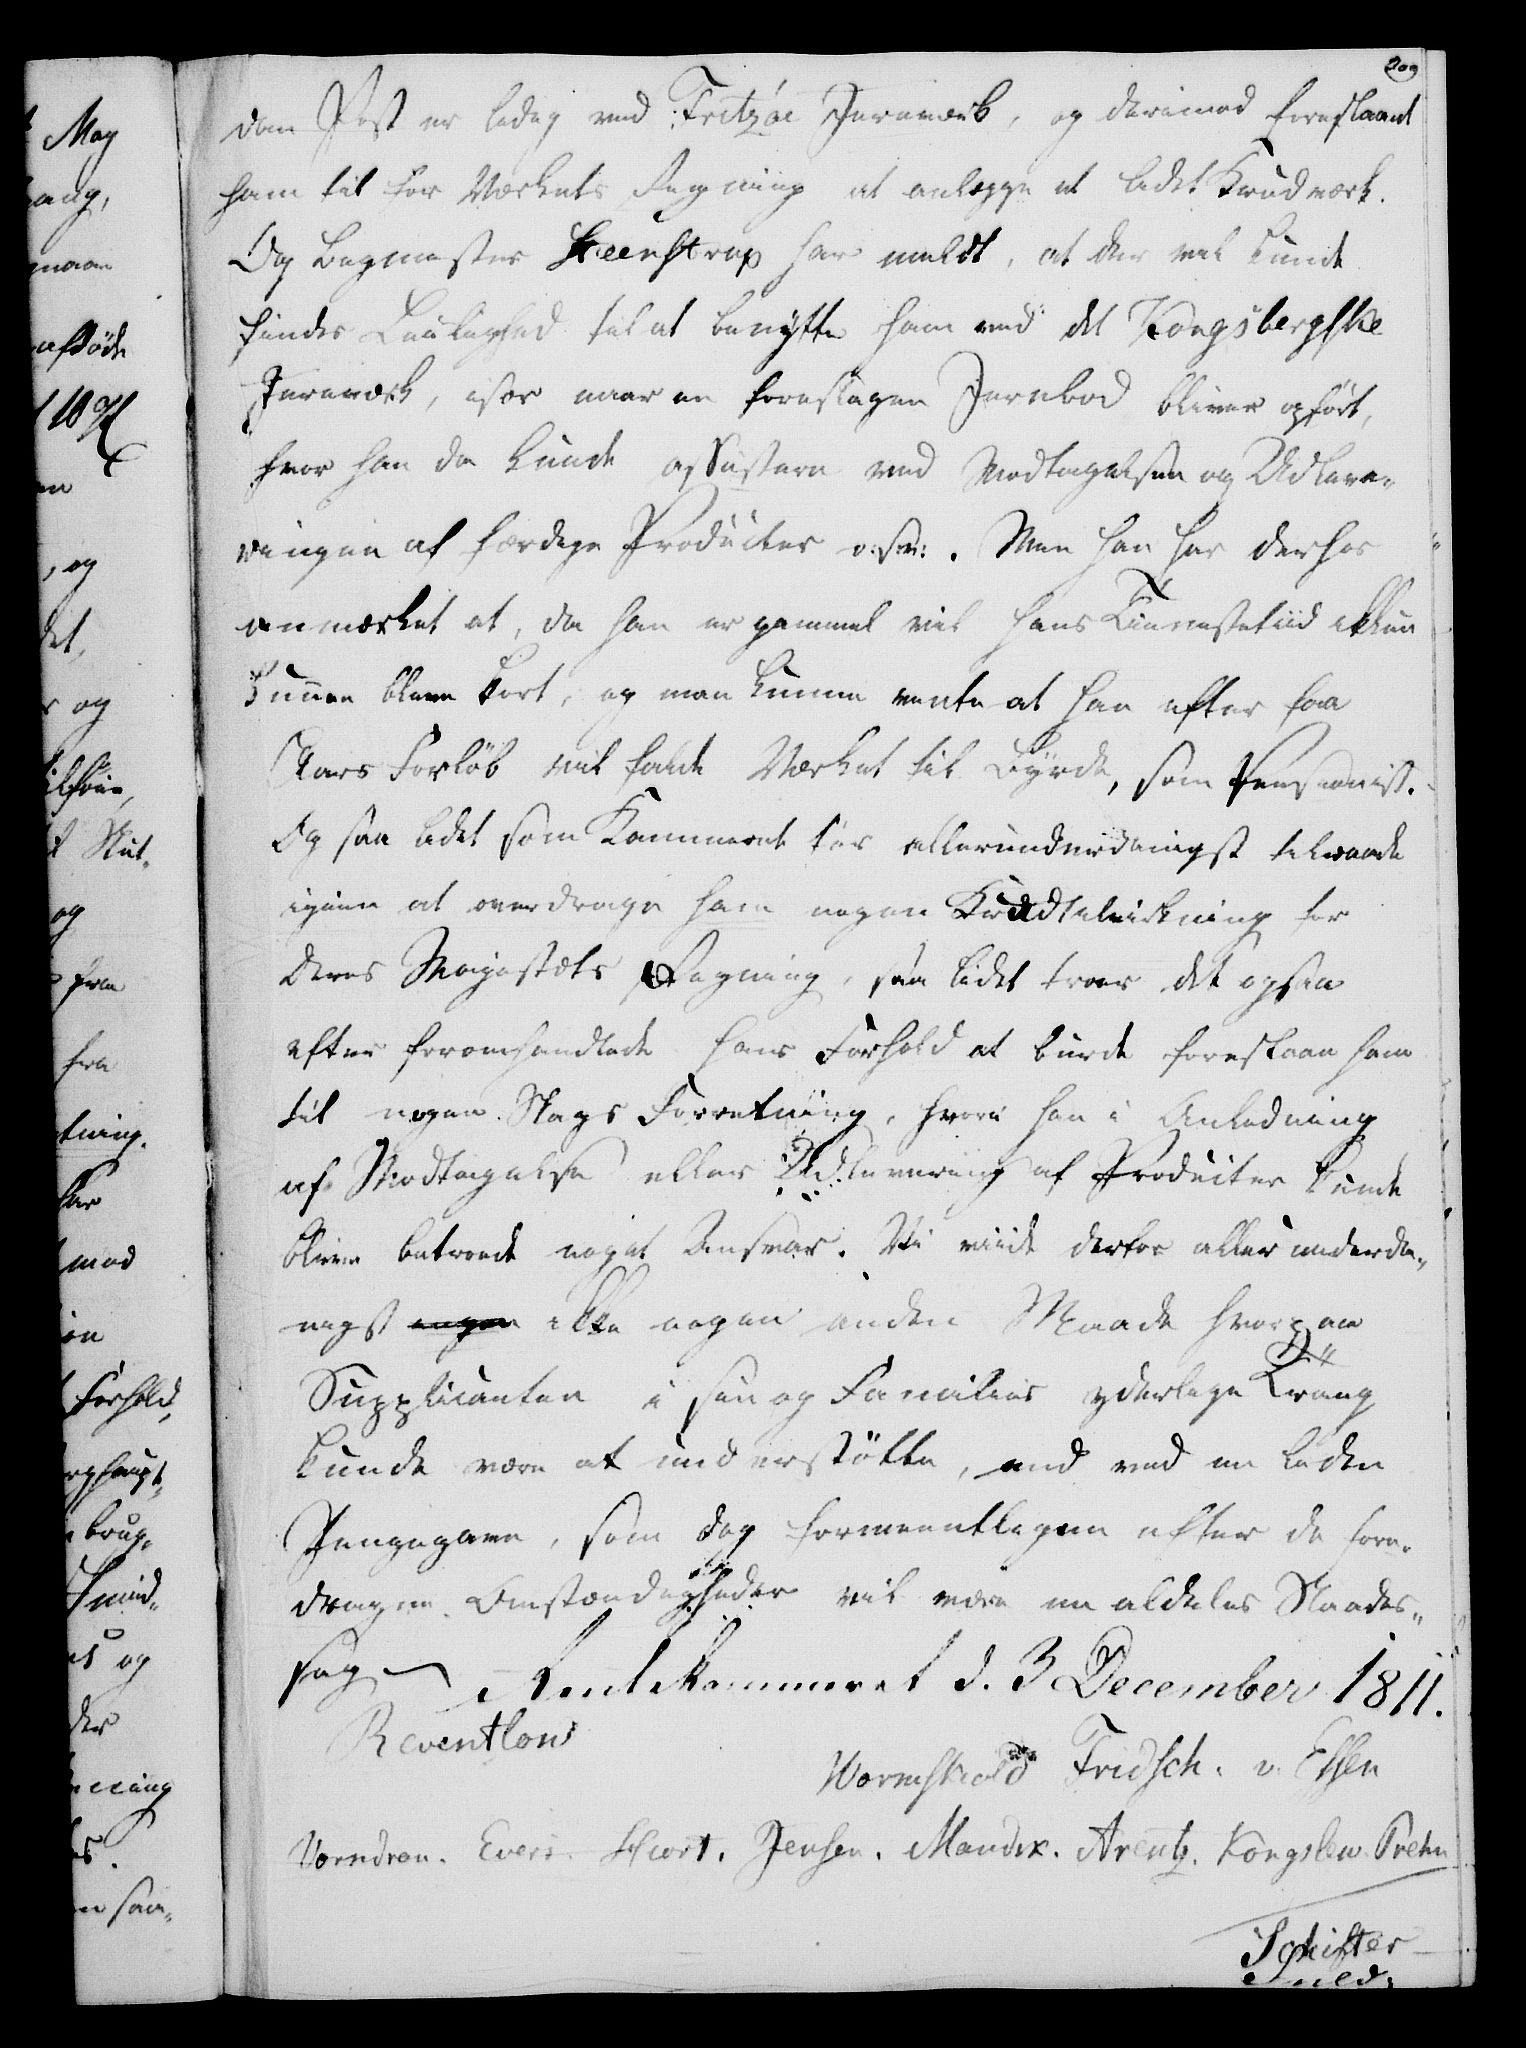 209
den Post er ledig ved Fritzöe Jernværk, og derimod foreslaaet
ham til for Værkets Regning at anlægge et lidet Krudværk.
Og Bergmester Steenstrup har meldt, at der vel kunde
findes Leilighed til at benytte ham ved det Kongsbergske
Jernværk, især naar en foreslagen Jernbod bliver opført,
hvor han da kunde assistere ved Modtagelsen og Udleve-
ringen af færdige Producter o: s: v:. Men han har derhos
anmærket at, da han er gammel vil hans Tienestetiid ikkun
kunne blive kort, og man kunne vente at han efter faa
Aars Forløb vil falde Værket til Byrde, som Pensionist.
Og saa lidet som Kammeret tør allerunderdanigst tilraade
igien at overdrage ham nogen Krudtilvirkning for
Deres Majestæts Regning, saa lidet troer det ogsaa
efter foromhandlede hans Forhold at burde foreslaae ham
til nogen Slags Forretning, hvori han i Anledning
af Modtagelse eller Udlevering af Producter kunde
blive betroede noget Ansvar. Vi viide derfor allerunderda-
nigst ikke nogen anden Maade hvorpaa
Supplicanten i sin og Families yderlige Trang
kunde være at understøtte, end ved en liden
Pengegave, som dog formeentligen efter de fore-
dragne Omstændigheder vil være en aldeles Naades-
sag Rentekammeret d. 3 December 1811.
Reventlow
Wormskiold Fridsch. v. Essen
Vorndran. Evers. Hiort. Jensen. Mandix. Arentz. Kongslew. Prehn
Schifter
May
og
og
og
fra
fra
Forhold,
og